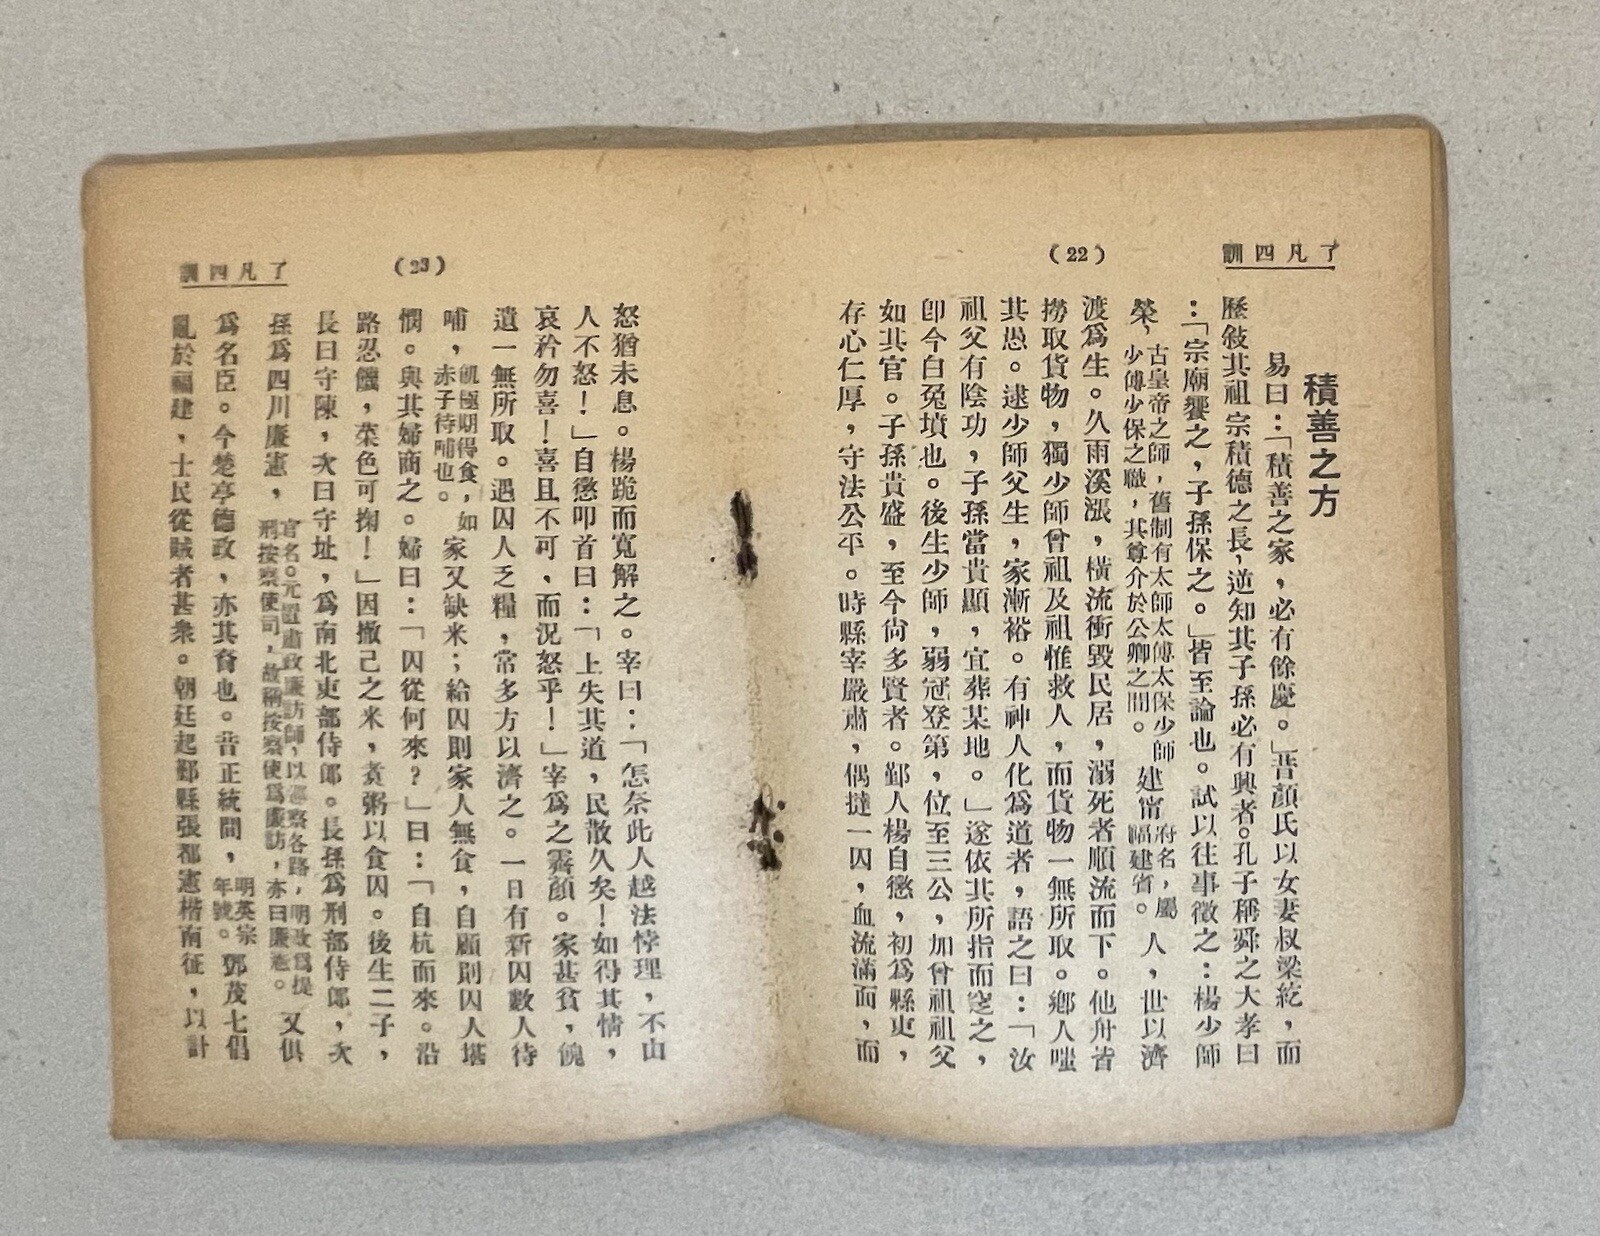 了凡四訓
(22)
積善之方
易曰：「積善之家，必有餘慶。」昔顏氏以女妻叔梁紇，而
歷敍其祖宗積德之長，逆知其子孫必有興者。孔子稱舜之大孝曰
：「宗廟饗之，子孫保之。」皆至論也。試以往事徵之：楊少師
榮，古皇帝之師，舊制有太師太傅太保少師少傅少保之職，其尊介於公卿之間。建甯府名，屬福建省。人，世以濟
渡爲生。久雨溪漲，橫流衝毀民居，溺死者順流而下。他舟皆
撈取貨物，獨少師曾祖及祖惟救人，而貨物一無所取。鄉人嗤
其愚。逮少師父生，家漸裕。有神人化爲道者，語之曰：「汝
祖父有陰功，子孫當貴顯，宜葬某地。」遂依其所指而窆之，
卽今白兔墳也。後生少師，弱冠登第，位至三公，加曾祖祖父
如其官。子孫貴盛，至今尙多賢者。鄞人楊自懲，初爲縣吏，
存心仁厚，守法公平。時縣宰嚴肅，偶撻一囚，血流滿面，而
(23)
了凡四訓
怒猶未息。楊跪而寬解之。宰曰：「怎奈此人越法悖理，不由
人不怒！」自懲叩首曰：「上失其道，民散久矣！如得其情，
哀矜勿喜！喜且不可，而況怒乎！」宰爲之霽顏。家甚貧，餽
遺一無所取。遇囚人乏糧，常多方以濟之。一日有新囚數人待
哺，飢極期得食，如赤子待哺也。家又缺米；給囚則家人無食，自顧則囚人堪
憫。與其婦商之。婦曰：「囚從何來？」曰：「自杭而來。沿
路忍饑，菜色可掬！」因撤己之米，煮粥以食囚。後生二子，
長曰守陳，次曰守址，爲南北吏部侍郎。長孫爲刑部侍郎，次
孫爲四川廉憲，官名。元置肅政廉訪師，以察各路，明改爲提刑按察使司，故稱按察使爲廉訪，亦曰廉憲。又俱
爲名臣。今楚亭德政，亦其裔也。昔正統間，明英宗年號。鄧茂七倡
亂於福建，士民從賊者甚衆。朝廷起鄞縣張都憲楷南征，以計